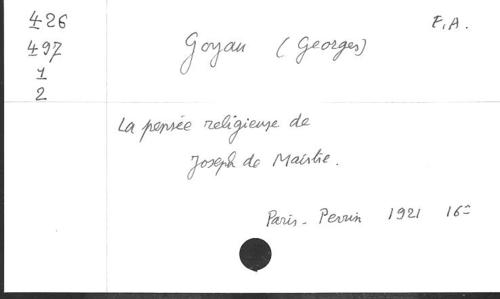 426
497
1
2
F.A.
Goyau (Georges)
La pensée religieuse de
Joseph de Maistre.
Paris - Perrin 1921 16°